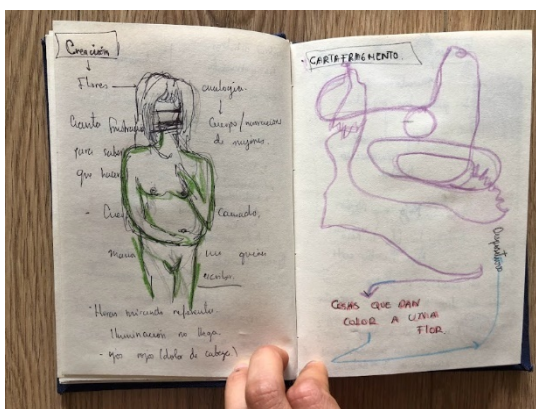 Creación
Flores analogía
Cuerpo / narraciones
de mujeres.
Siento frustración
para saber
que hacer
- Cuerpo cansado,
mano no quiere
escribir.
- Horas mirando
Iluminación no llega
- ojos rojos (dolor de cabeza)
- CARTAFRAGMENTO.
Dispositivo
COSAS QUE DAN
COLOR A UNA
FLOR.